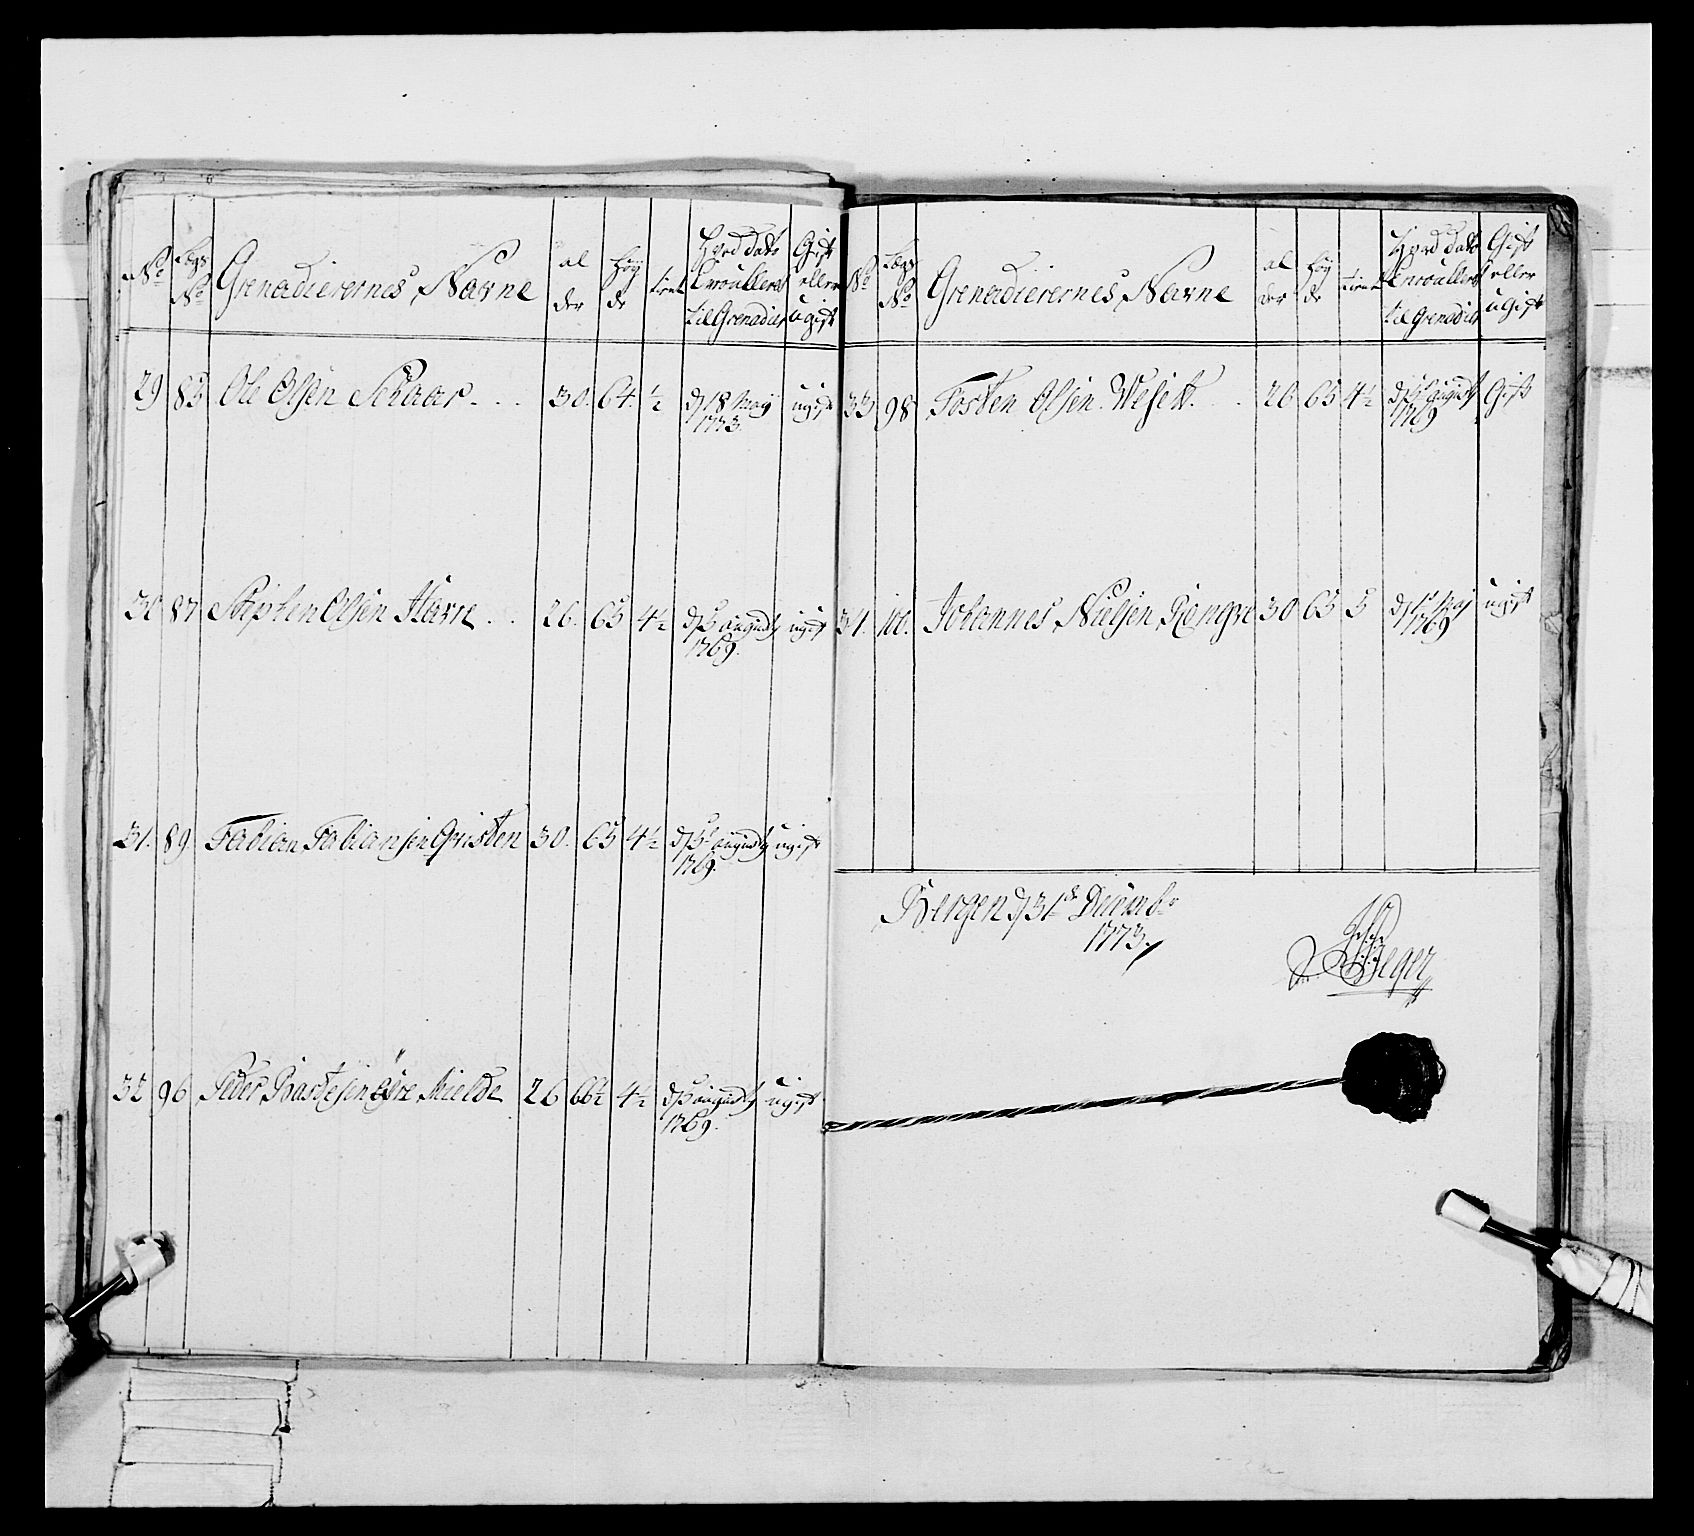 No Legs No Grenadierernes Navne al der Høy de tient Hvad Dato Enroulleret til Grenadier Gift eller ugift
29 83 Ole Olsen Schaar 30. 64. ½ d 18 Maij 1773. ugift
30 87 Olsen Havre 26. 65 4½ d 5 august 1769. ugift
31. 89. Fabian Fabiansen Qvisten 30. 65 4½ d 5 august 1769. ugift
32 96 Peder Bastesen Øvre Mielde 26 66½ 4½ d 5 august 1769. ugift
No Legs No Grenadierernes Navne al der Høy de tient Hvad Dato Enroulleret til Grenadier Gift eller ugift
33 98 Tosten Olsen 26 65 4½ d 5 august 1769 Gift
34. 110. Johannes Nielsen 30 65 5 d 1 Maj 1769 ugift
Bergen d 31de Decembr
1773.